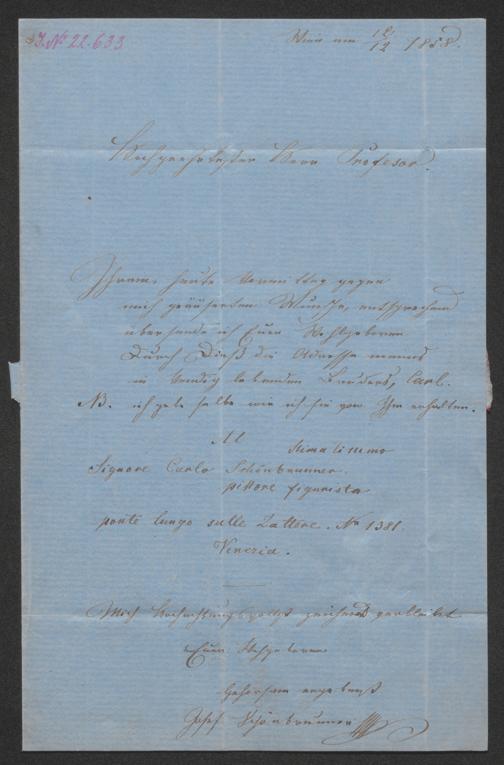 J.N. 22.633
Wien am 12/12 1858.
Hochgeehrtester Herr Profesor.
Ihrem, heute Vormittag gegen
mich geäuserten Wunsche, entsprechend
übersende ich Euer Wohlgeboren
Durch Dieß die Adresse meines
in Venedig lebenden Bruders, Carl.
NB. ich gebe selbe wie ich sie von Ihm erhalten.
Al
Stimatissimo
Signore Carlo Schönbrunner.
pittore figurista
ponte lungo sulle Zattere. No 1381.
Venezia.
Mich Hochachtungsvollst zeichnend verbleibt
Euer Wohlgeboren
Gehorsam ergebenst
Josef Schönbrunner